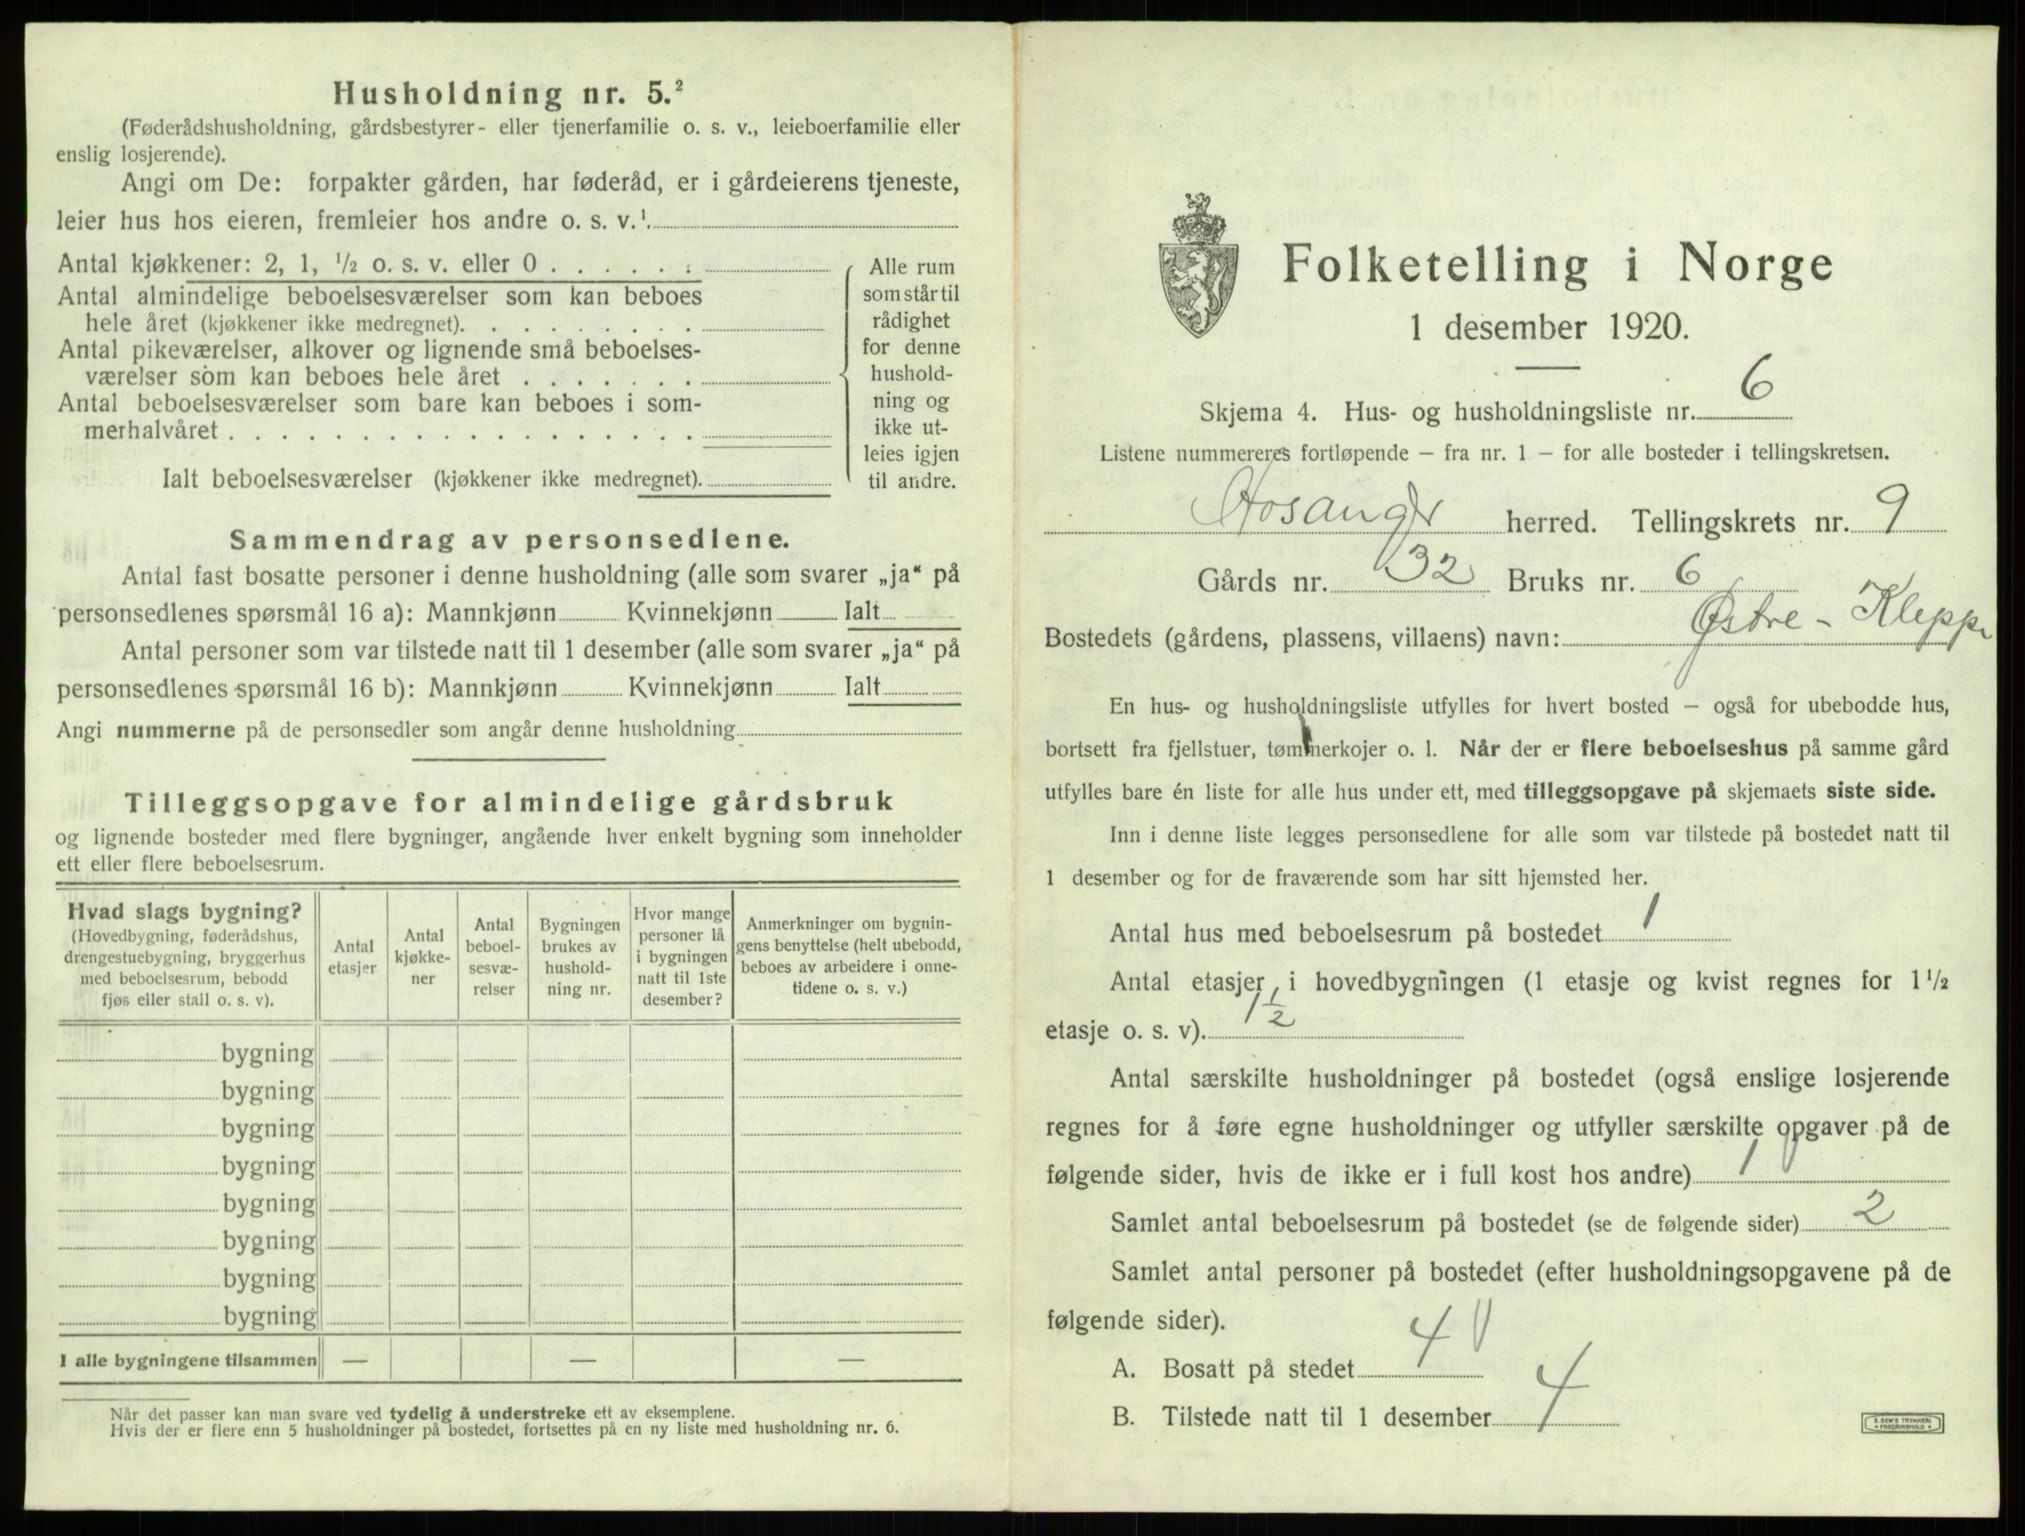 Husholdning nr. 5.²
(Føderådshusholdning, gårdsbestyrer- eller tjenerfamilie o. s. v., leieboerfamilie eller
enslig losjerende).
Angi om De: forpakter gården, har føderåd, er i gårdeierens tjeneste,
leier hus hos eieren, fremleier hos andre o. s. v.¹
Antal kjøkkener: 2, 1, ½ o. s. v. eller 0
Antal almindelige beboelsesværelser som kan beboes
hele året (kjøkkener ikke medregnet).
Antal pikeværelser, alkover og lignende små beboelses-
værelser som kan beboes hele året
Antal beboelsesværelser som bare kan beboes i som-
merhalvåret
Ialt beboelsesværelser (kjøkkener ikke medregnet).
Alle rum
som står til
rådighet
for denne
hushold-
ning og
ikke ut-
leies igjen
til andre.
Sammendrag av personsedlene.
Antal fast bosatte personer i denne husholdning (alle som svarer „ja“ på
personsedlenes spørsmål 16 a): Mannkjønn Kvinnekjønn Ialt
Antal personer som var tilstede natt til 1 desember (alle som svarer „ja“ på
personsedlenes spørsmål 16 b): Mannkjønn Kvinnekjønn Ialt
Angi nummerne på de personsedler som angår denne husholdning
Tilleggsopgave for almindelige gårdsbruk
og lignende bosteder med flere bygninger, angående hver enkelt bygning som inneholder
ett eller flere beboelsesrum.
Hvad slags bygning?
(Hovedbygning, føderådshus,
drengestuebygning, bryggerhus
med beboelsesrum, bebodd
fjøs eller stall o. s. v).
Antal
etasjer
Antal
kjøkke-
ner
Antal
beboel-
sesvæ-
relser
Bygningen
brukes av
hushold-
ning nr.
Hvor mange
personer lå
i bygningen
natt til 1ste
desember?
Anmerkninger om bygnin-
gens benyttelse (helt ubebodd,
beboes av arbeidere i onne-
tidene o. s. v.)
bygning
bygning
bygning
bygning
bygning
bygning
bygning
bygning
I alle bygningene tilsammen — — —
Når det passer kan man svare ved tydelig å understreke ett av eksemplene.
Hvis der er flere enn 5 husholdninger på bostedet, fortsettes på en ny liste med husholdning nr. 6.
Folketelling i Norge
1 desember 1920.
Skjema 4. Hus- og husholdningsliste nr. 6
Listene nummereres fortløpende – fra nr. 1 – for alle bosteder i tellingskretsen.
Hosanger herred. Tellingskrets nr. 9
Gårds nr. 32 Bruks nr. 6
Bostedets (gårdens, plassens, villaens) navn: Østre - Kleppe
En hus- og husholdningsliste utfylles for hvert bosted – også for ubebodde hus,
bortsett fra fjellstuer, tømmerkojer o. l. Når der er flere beboelseshus på samme gård
utfylles bare én liste for alle hus under ett, med tilleggsopgave på skjemaets siste side.
Inn i denne liste legges personsedlene for alle som var tilstede på bostedet natt til
1 desember og for de fraværende som har sitt hjemsted her.
Antal hus med beboelsesrum på bostedet 1
Antal etasjer i hovedbygningen (1 etasje og kvist regnes for 1½
etasje o. s. v). 1½
Antal særskilte husholdninger på bostedet (også enslige losjerende
regnes for å føre egne husholdninger og utfyller særskilte opgaver på de
følgende sider, hvis de ikke er i full kost hos andre) 1
Samlet antal beboelsesrum på bostedet (se de følgende sider) 2
Samlet antal personer på bostedet (efter husholdningsopgavene på de
følgende sider).
A. Bosatt på stedet 4
B. Tilstede natt til 1 desember 4
E. SEM'S TRYKKERI
FREDRIKSHALD